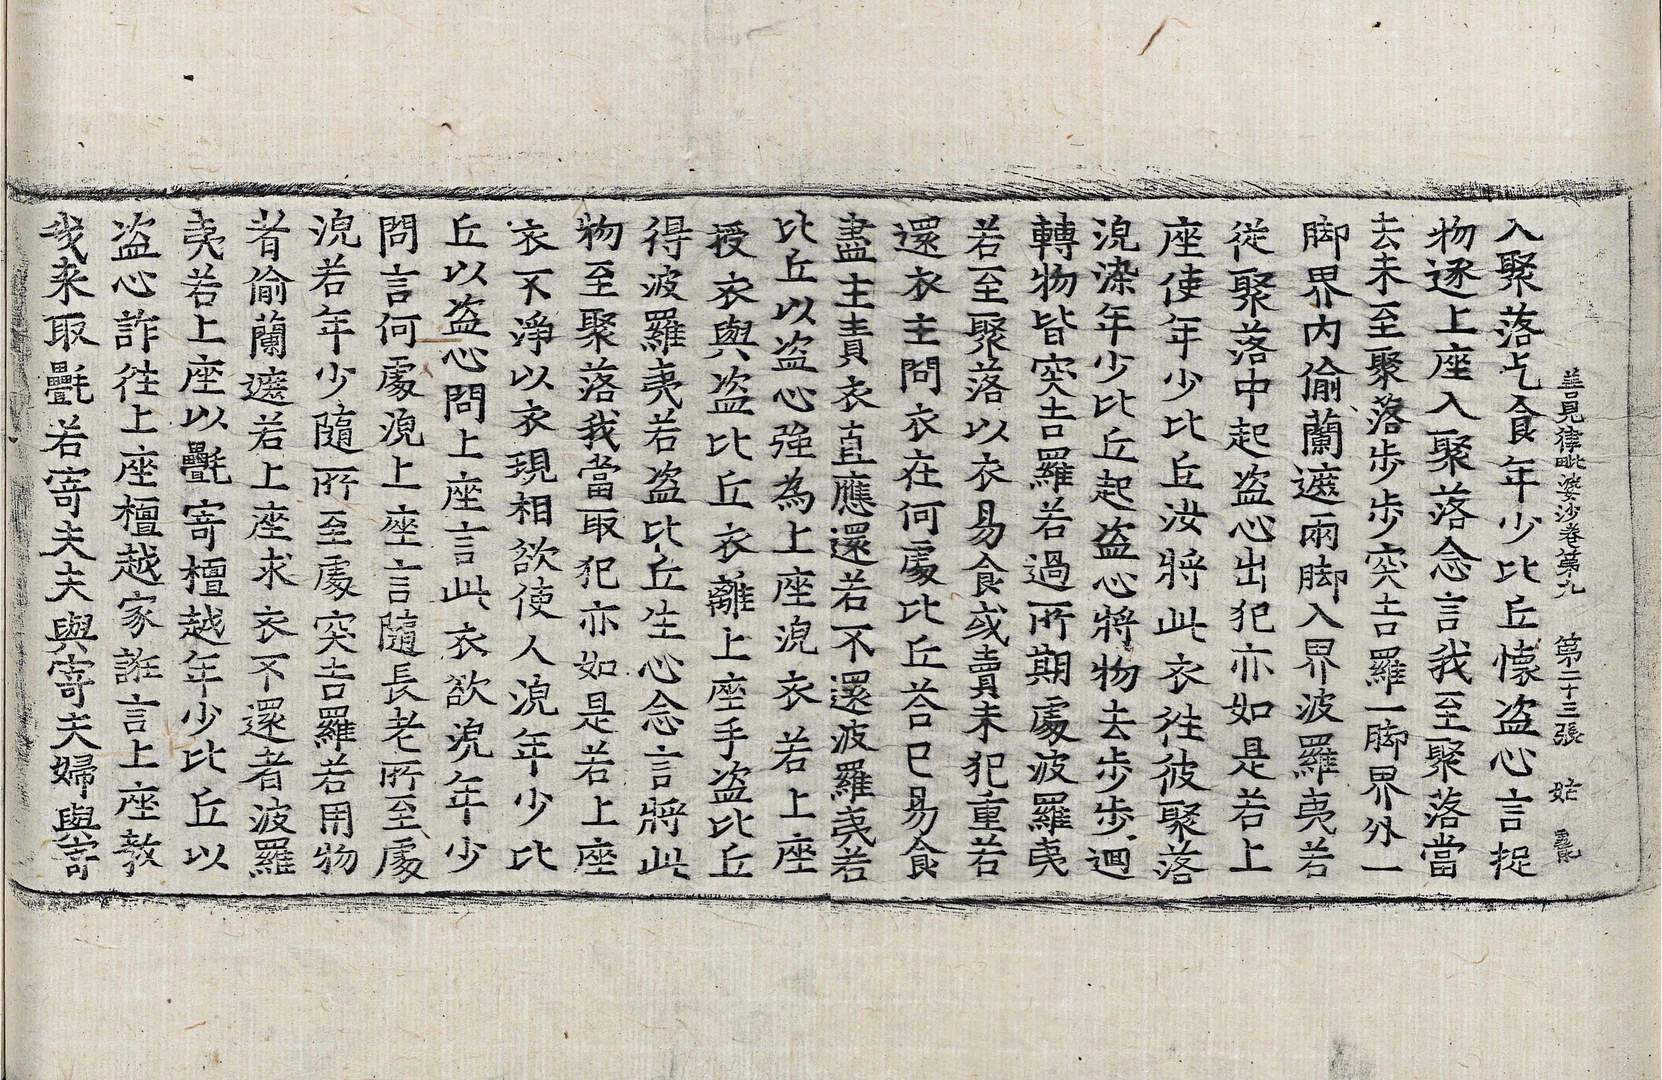 善見律毗婆沙卷第九　第二十三張　姑
入聚落乞食年少比丘懷盜心言捉
物逐上座入聚落念言我至聚落當
去未至聚落步步突吉羅一脚界外一
脚界內偷蘭遮兩脚入界波羅夷若
從聚落中起盜心出犯亦如是若上
座使年少比丘汝將此衣往彼聚落
浣染年少比丘起盜心將物去步步迴
轉物皆突吉羅若過所期處波羅夷
若至聚落以衣易食或賣未犯重若
還衣主問衣在何處比丘荅已易食
盡主責衣直應還若不還波羅夷若
比丘以盜心強為上座浣衣若上座
授衣與盜比丘衣離上座手盜比丘
得波羅夷若盜比丘生心念言將此
物至聚落我當取犯亦如是若上座
衣不淨以衣現相欲使人浣年少比
丘以盜心問上座言此衣欲浣年少
問言何處浣上座言隨長老所至處
浣若年少隨所至處突吉羅若用物
者偷蘭遮若上座求衣不還者波羅
夷若上座以㲲寄檀越年少比丘以
盜心詐往上座檀越家誑言上座教
我来取㲲若寄夫夫與寄夫婦與寄